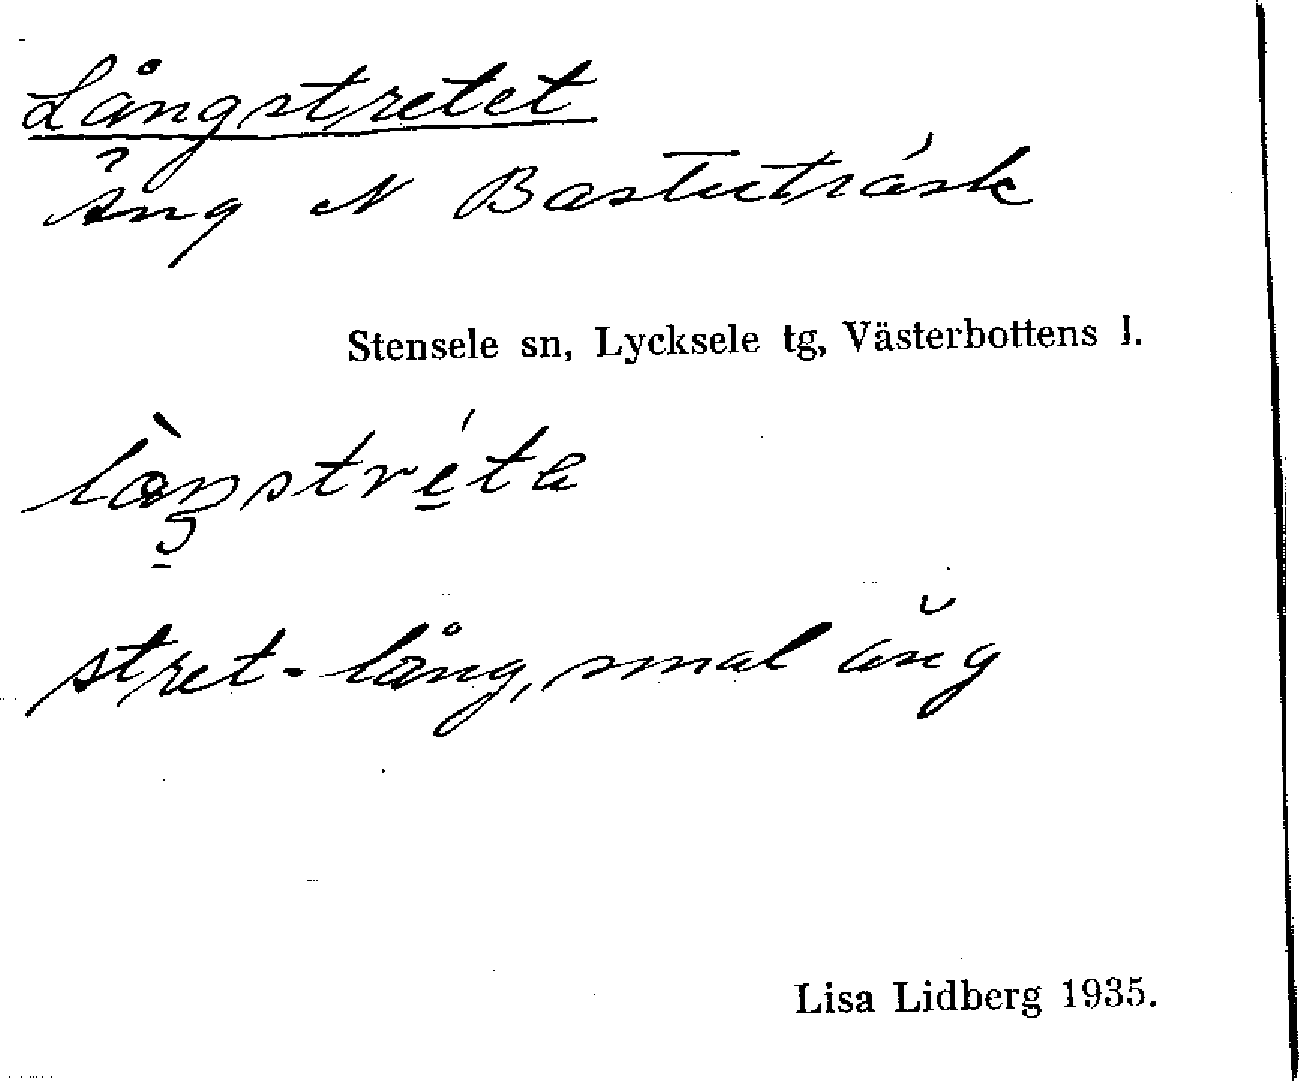 Långstretet
Äng N Bastuträsk
Stensele sn, Lycksele tg, Västerbottens l.
stret - lång, smal äng
Lisa Lidberg 1935.